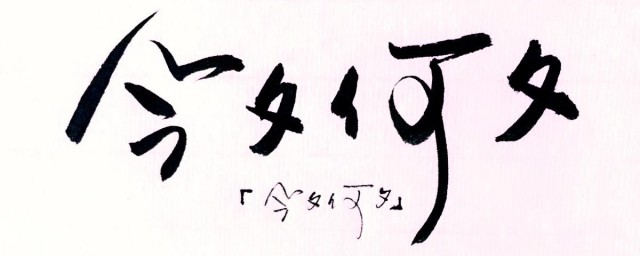 今夕何夕
「今夕何夕」